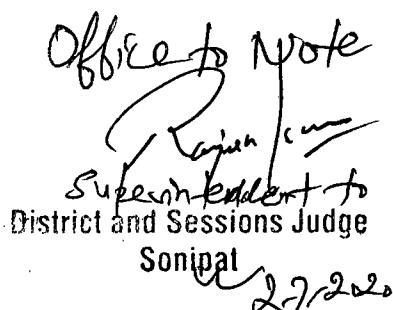 Office to Note
Superintendent to
District and Sessions Judge
Sonipat
2.7.2020